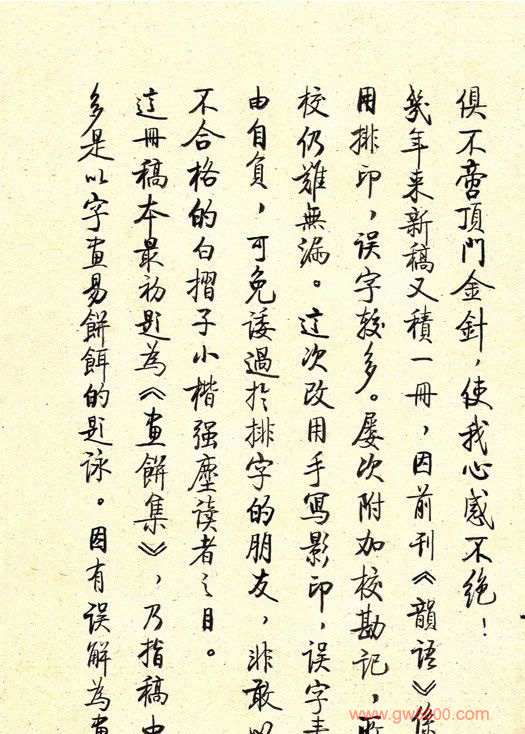 俱不啻頂門金針，使我心感不绝！
幾年来新稿又積一冊，因前刊《韻語》係
用排印，误字較多。屡次附加校勘记，所
校仍難無漏。這次改用手寫影印，误字責
由自負，可免諉過於排字的朋友，非敢以
不合格的白摺子小楷强塵读者之目。
這冊稿本最初题為《畫餅集》，乃指稿中
多是以字畫易餅餌的题詠。因有误解為畫
www.gwz00.com